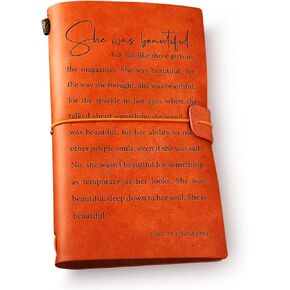 She was beautiful
but not like those girls in
the magazines. She was beautiful, for
the way she thought. She was beautiful,
for the sparkle in her eyes when she
talked about something she loved. She
was beautiful, for her ability to make
other people smile, even if she was sad.
No, she wasn't beautiful for something
as temporary as her looks. She was
beautiful, deep down to her soul. She is
beautiful.
F. SCOTT FITZGERALD